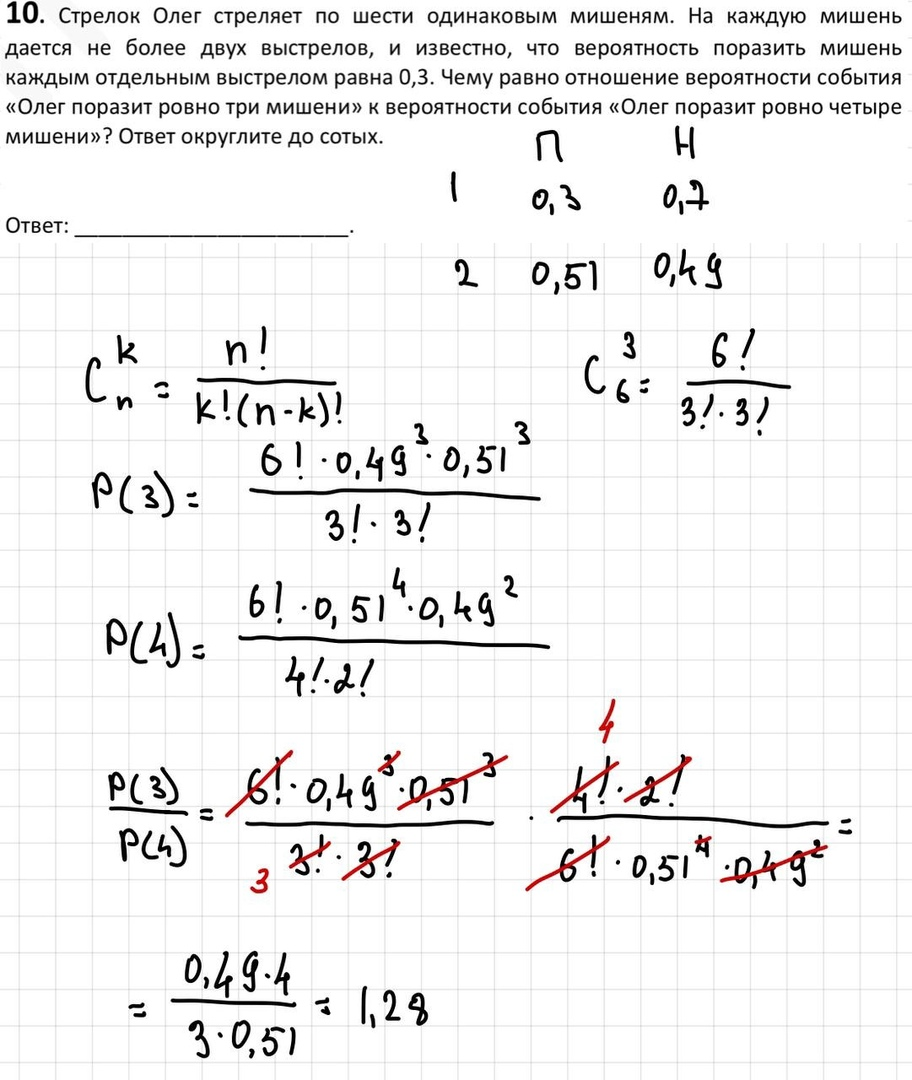 10. Стрелок Олег стреляет по шести одинаковым мишеням. На каждую мишень
дается не более двух выстрелов, и известно, что вероятность поразить мишень
каждым отдельным выстрелом равна 0,3. Чему равно отношение вероятности события
«Олег поразит ровно три мишени» к вероятности события «Олег поразит ровно четыре
мишени»? Ответ округлите до сотых.
П Н
1 0,3 0,7
Ответ: ______________________.
2 0,51 0,49
C_n^k = n! / k!(n-k)!
C_6^3 = 6! / 3!·3!
P(3) = 6!·0,49^3·0,51^3 / 3!·3!
P(4) = 6!·0,51^4·0,49^2 / 4!·2!
4
P(3)/P(4) = 6!·0,49^3·0,51^3 / 3!·3! · 4!·2! / 6!·0,51^4·0,49^2 =
3
= 0,49·4 / 3·0,51 = 1,28